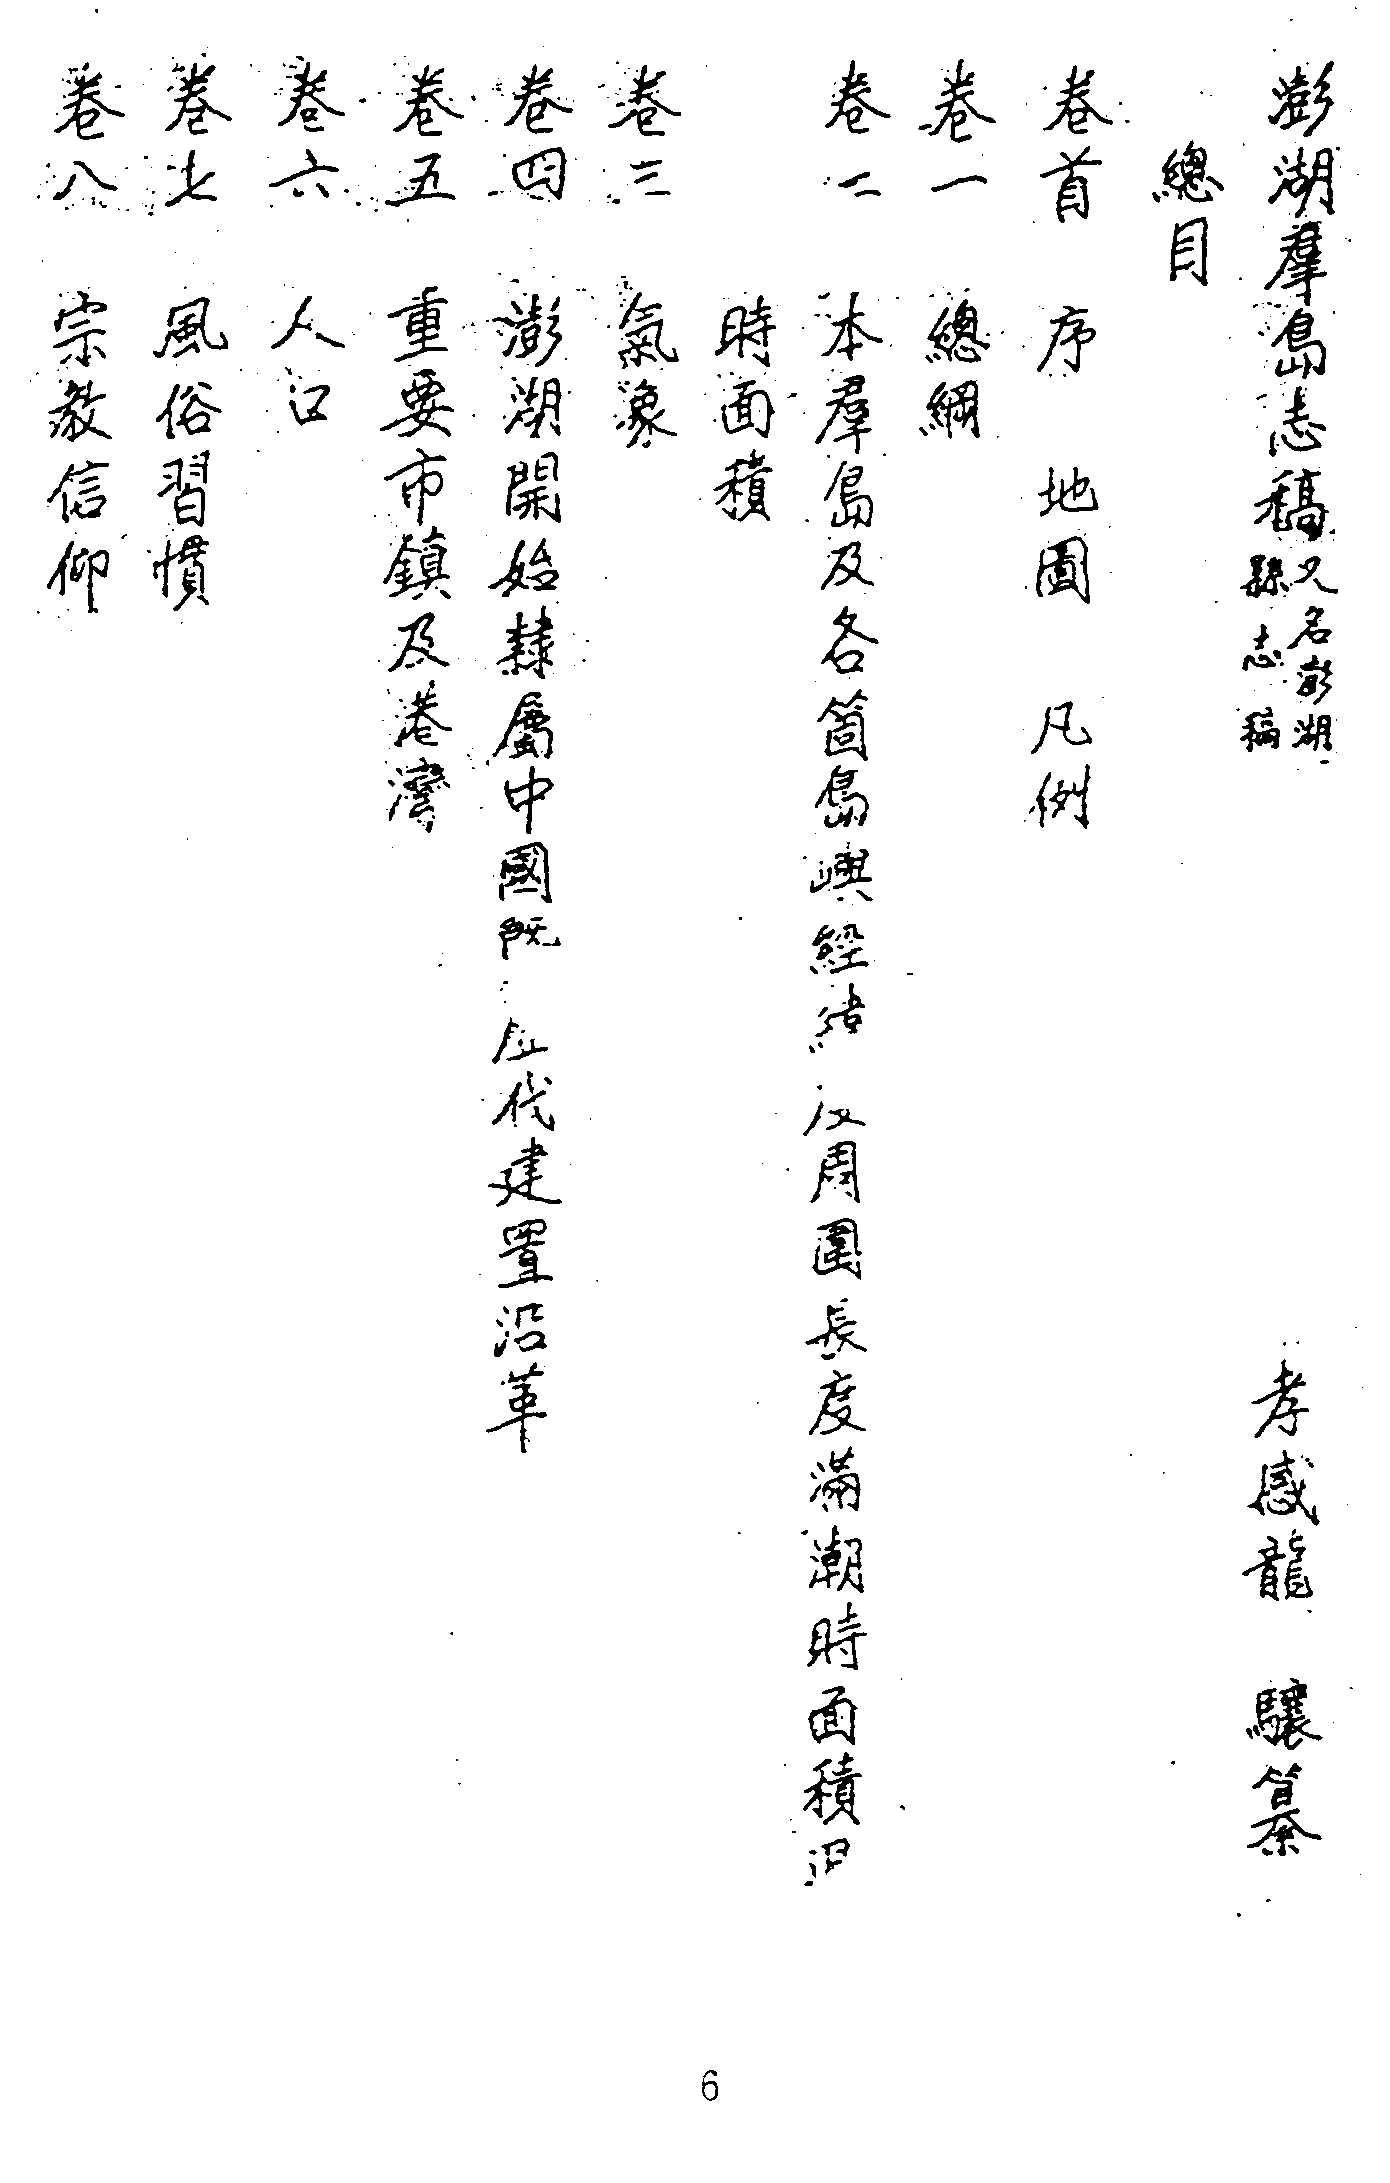 澎湖羣島志稿 又名澎湖縣志稿 孝感龍 驤纂
總目
卷首 序 地圖 凡例
卷一 總綱
卷二 本羣島及各箇島嶼經緯 及周圍長度滿潮時面積
時面積
卷三 氣象
卷四 澎湖開始隸屬中國既 歷代建置沿革
卷五 重要市鎮及港灣
卷六 人口
卷七 風俗習慣
卷八 宗教信仰
6